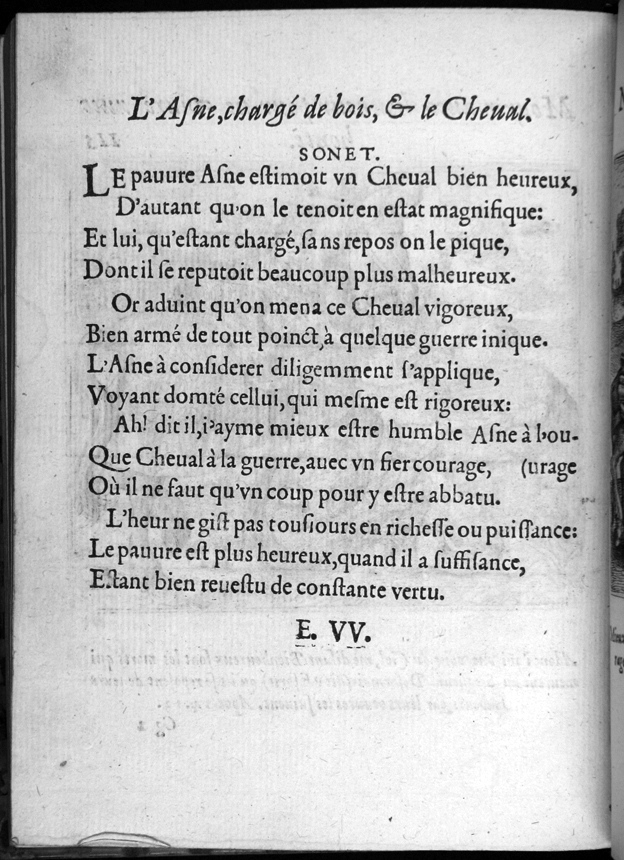 L'Aſne, chargé de bois, & le Cheual.
SONET.
LE pauure Aſne eſtimoit vn Cheual bien heureux,
D'autant qu'on le tenoit en eſtat magnifique:
Et lui, qu'eſtant chargé, ſans repos on le pique,
Dont il ſe reputoit beaucoup plus malheureux.
Or aduint qu'on mena ce Cheual vigoreux,
Bien armé de tout poinct, à quelque guerre inique.
L'Aſne à conſiderer diligemment ſ'applique,
Voyant domté cellui, qui meſme eſt rigoreux:
Ah! dit il, i'ayme mieux eſtre humble Aſne à l'ou-
Que Cheual à la guerre, auec vn fier courage, (urage
Où il ne faut qu'vn coup pour y eſtre abbatu.
L'heur ne giſt pas touſiours en richeſſe ou puiſſance:
Le pauure eſt plus heureux, quand il a ſuffiſance,
Eſtant bien reueſtu de conſtante vertu.
E. VV.